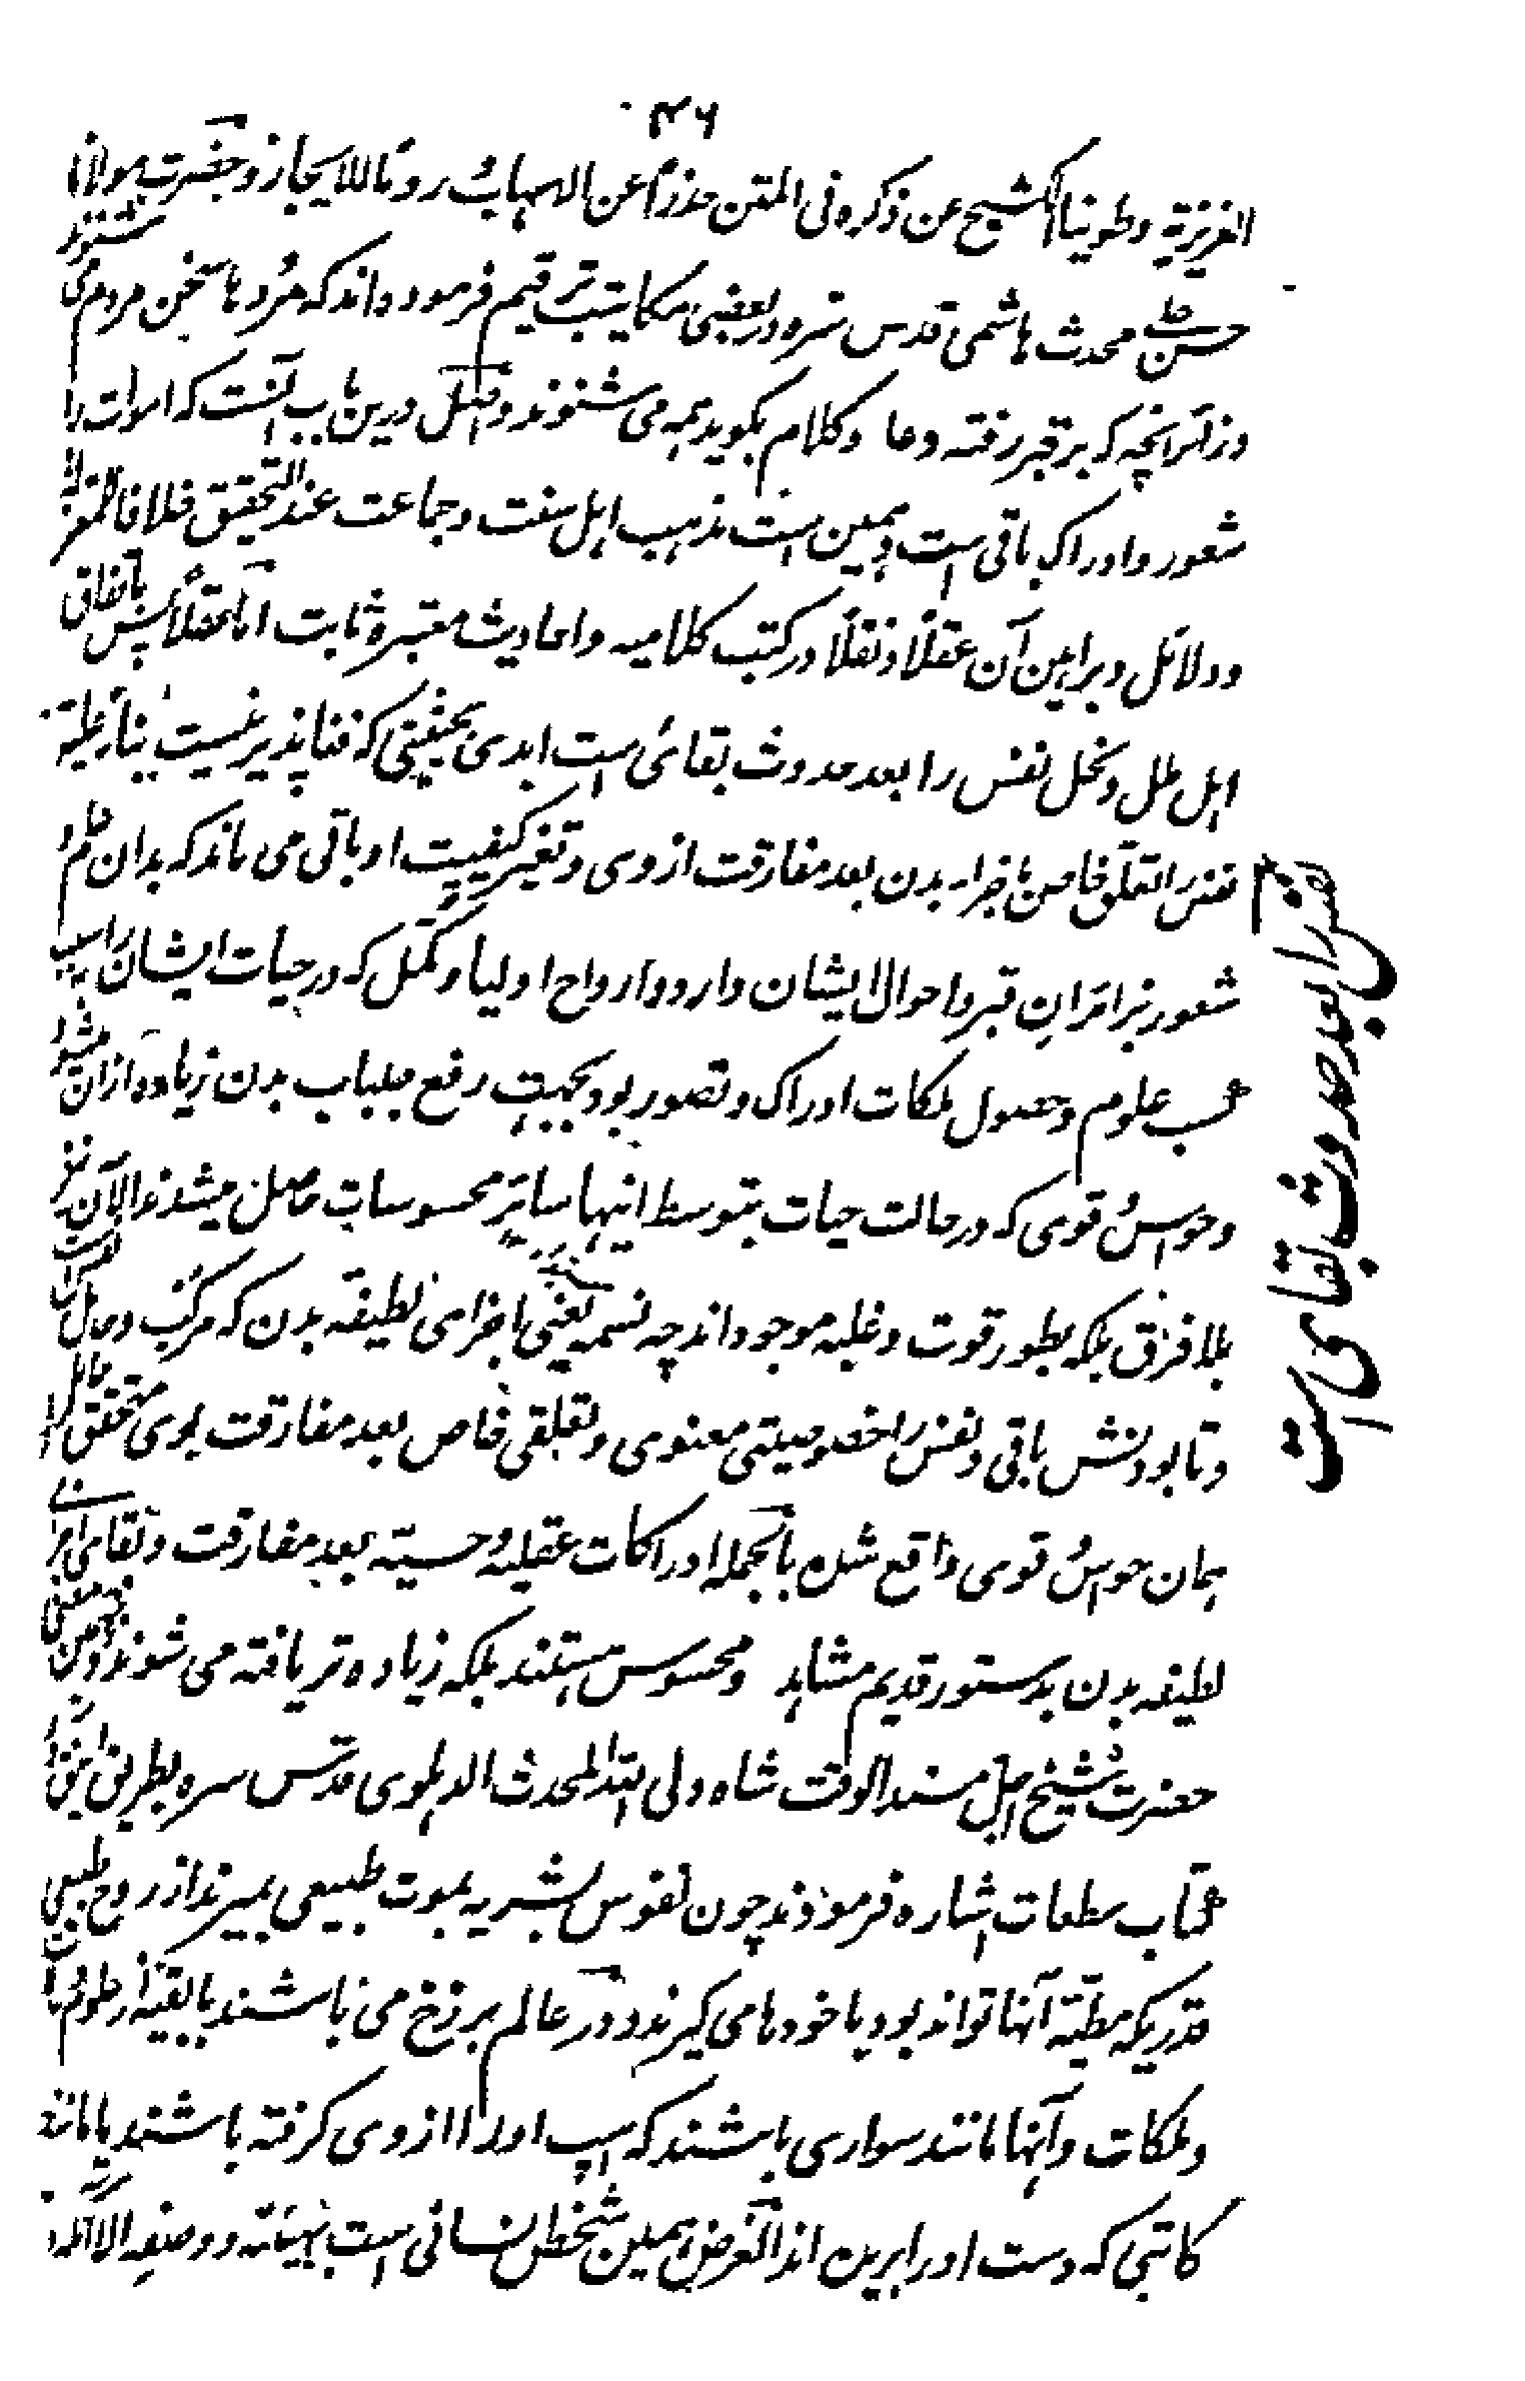 ۴۶
العزیزیة وطوینا الکشح عن ذکره فی المتن حذرا عن الاسهاب و روما للایجاز و حضرت مولانا
حسن علی محدث هاشمی قدس سره در بعضی مکاتیب ترقیم فرموده اند که مُرد ها سخن مردم می شنوند
و زائر انچه که بر قبر رفته دعا و کلام بگوید همه می شنوند و اصل درین باب آنست که اموات را
شعور و ادراک باقی است و همین است مذهب اهل سنت و جماعت عند التحقیق خلافا للمعتزلة
و دلائل و براهین آن عقلاً و نقلاً در کتب کلامیه و احادیث معتبره ثابت اما عقلاً پس باتفاق
اهل ملل و نحل نفس را بعد حدوث بقائی است ابدی بحیثیتی که فنا پذیر نیست بنابر علیه
نفس را تعلق خاص باجزاء بدن بعد مفارقت از وی و تغیر کیفیت او باقی می ماند که بدان علم و
شعور بزائران قبر و احوال ایشان دارد و ارواح اولیا و کمل که در حیات ایشان را سبب
کسب علوم و حصول ملکات ادراک و تصور بود بجهت رفع جلباب بدن زیاده ازان میشود
و حواس قوی که در حالت حیات بتوسط اینها سایر محسوسات حاصل میشدند الآن نیز
بلا فرق بلکه بطور قوت و غلبه موجود اند چه نسمه یعنی اجزای لطیفه بدن که مرکب و حامل
و تا بودنش باقی و نفس را خصوصیتی معنوی و تعلقی خاص بعد مفارقت بوی متحقق
همان حواس قوی واقع شده بالجمله ادراکات عقلیه و حسیه بعد مفارقت و بقای اجزای
لطیفه بدن بدستور قدیم مشاهد و محسوس هستند بلکه زیاده تر یافته می شوند و همین معنی
حضرت شیخ اجل مسند الوقت شاه ولی الله المحدث الدهلوی قدس سره بطریق
کتاب سطعات اشاره فرمودند چون نفوس بشریه بموت طبیعی بمیرند از روح طبیعی
قدریکه مطیة آنها تواند بود با خودها می گیرند و در عالم برزخ می باشند با بقیه از علوم
و ملکات و آنها مانند سواری باشند که اسپ او را از وی گرفته باشند یا مانند
کاتبی که دست او را بریده اند الغرض همین شخص انسانی است بهیئته و وصفه الا آنکه
نفس را بعد حدوث بقای است